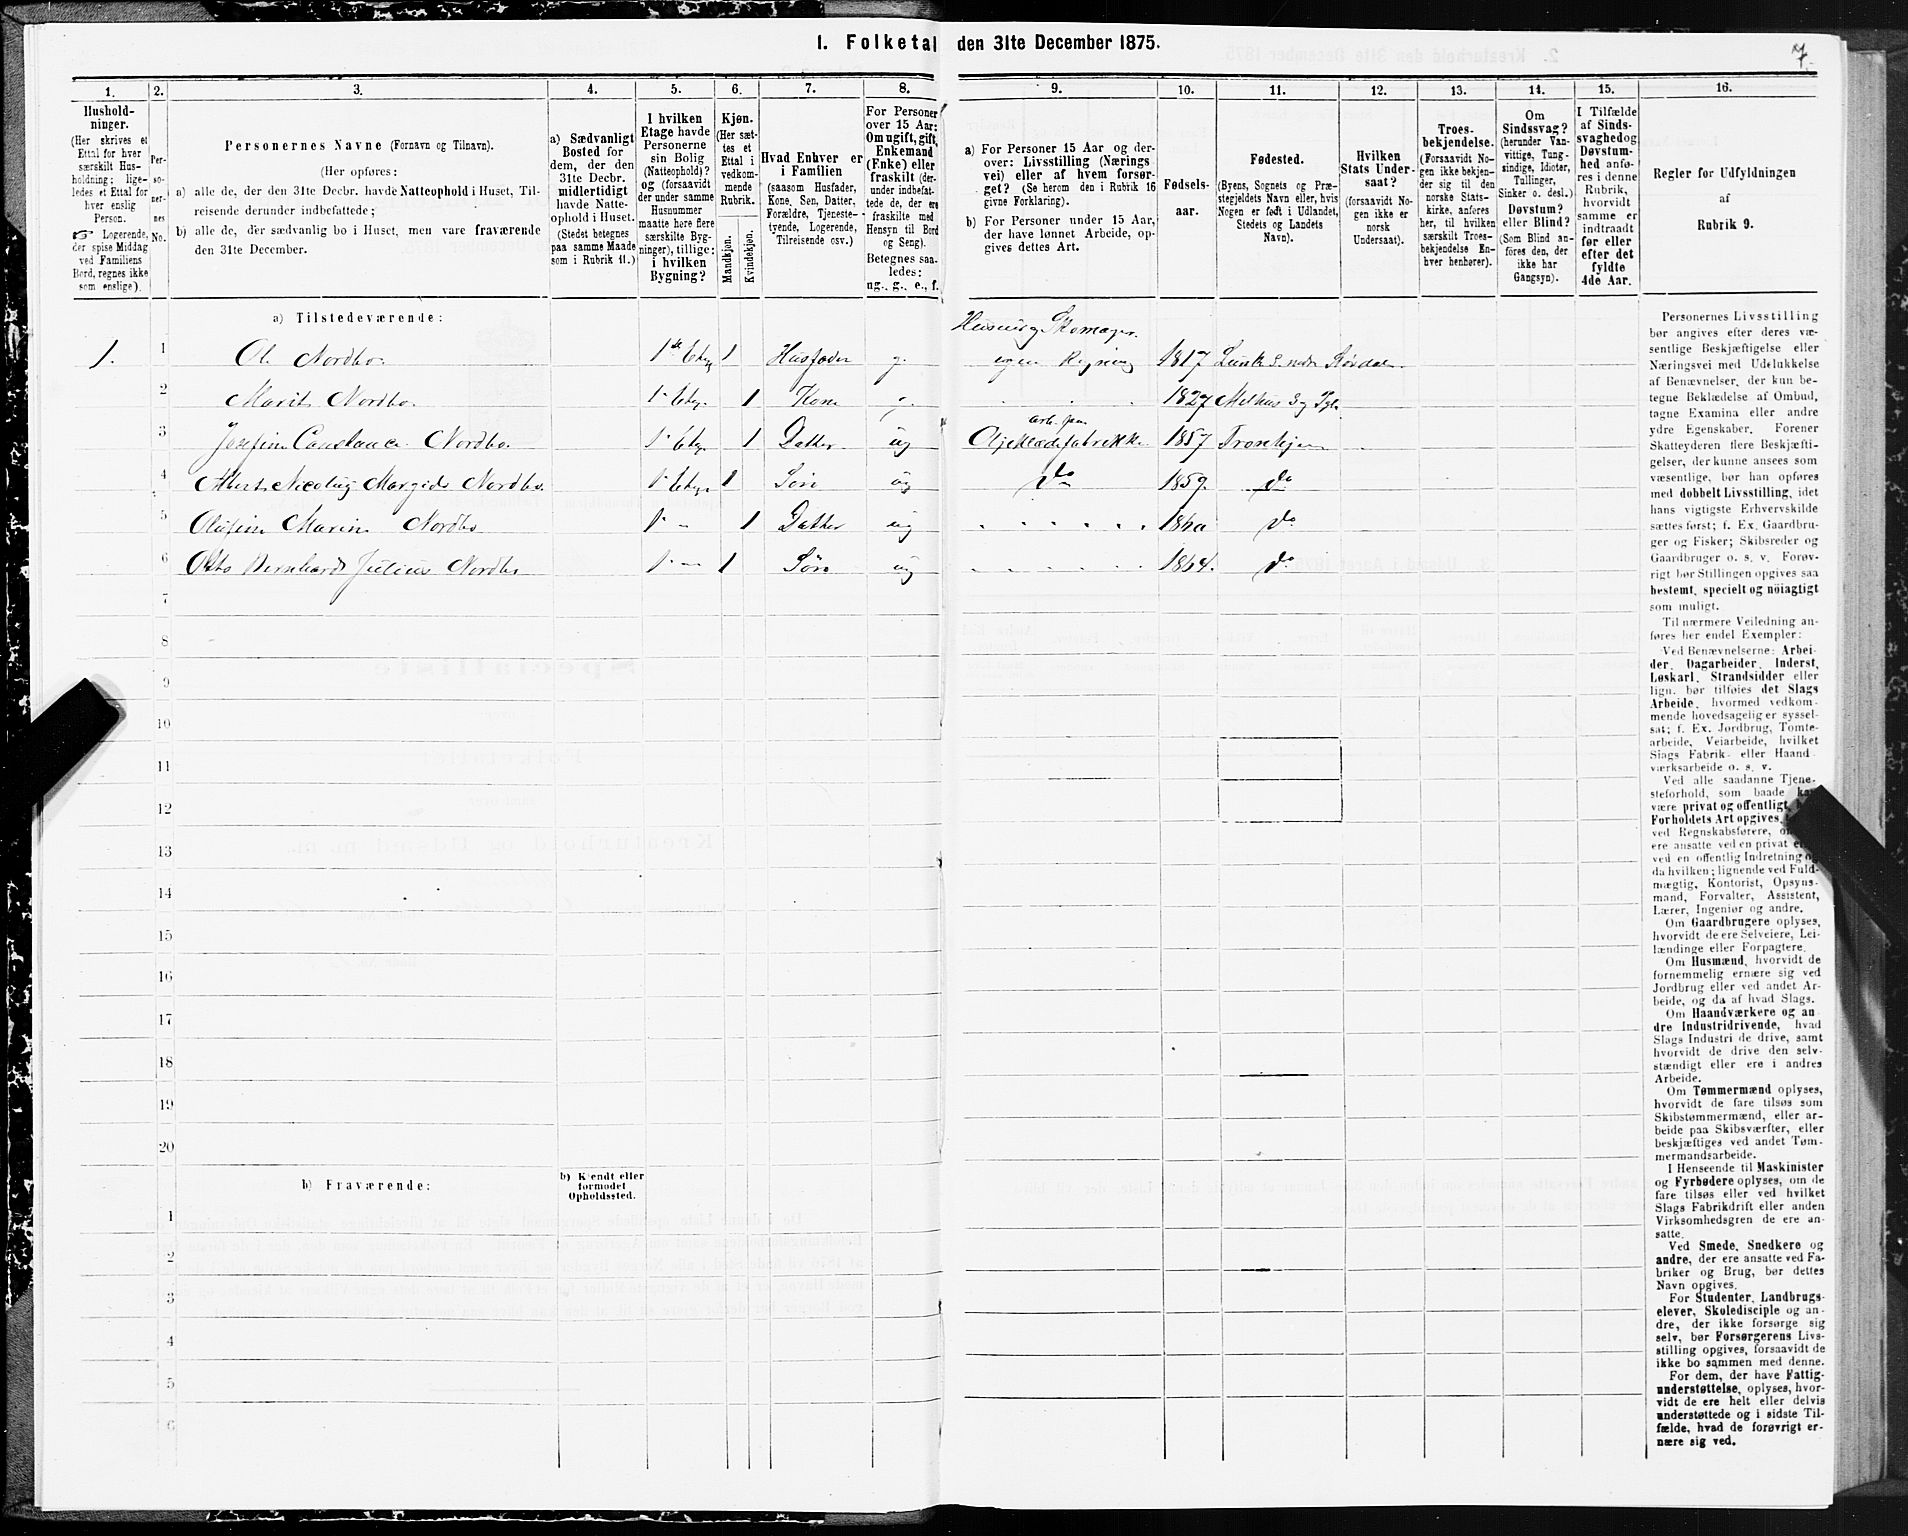 1. Folketal den 31te December 1875.
7.
1. 2. 3. 4. 5. 6. 7. 8. 9. 10. 11. 12. 13. 14. 15. 16.
Hushold-
ninger.
(Her skrives et
Ettal for hver
særskilt Hus-
holdning; lige-
ledes et Ettal for
hver enslig
Person.
☞ Logerende,
der spise Middag
ved Familiens
Bord, regnes ikke
som enslige).
Per-
so-
ner-
nes
No.
Personernes Navne (Fornavn og Tilnavn).
(Her opføres:
a) alle de, der den 31te Decbr. havde Natteophold i Huset, Til-
reisende derunder indbefattede;
b) alle de, der sædvanlig bo i Huset, men vare fraværende
den 31te December.
a) Sædvanligt
Bosted for
dem, der den
31te Decbr.
midlertidigt
havde Natte-
ophold i Huset.
(Stedet betegnes
paa samme Maade
som i Rubrik 11.)
I hvilken
Etage havde
Personerne
sin Bolig
(Natteophold)?
og (forsaavidt
der under samme
Husnummer
maatte høre flere
særskilte Byg-
ninger), tillige:
i hvilken
Bygning?
Kjøn.
(Her sæt-
tes et
Ettal i
vedkom-
mende
Rubrik.
Mandkjøn.
Kvindekjøn.
Hvad Enhver er
i Familien
(saasom Husfader,
Kone, Søn, Datter,
Forældre, Tjeneste-
tyende, Logerende,
Tilreisende osv.)
For Personer
over 15 Aar:
Om ugift, gift,
Enkemand
(Enke) eller
fraskilt (der-
under indbefat-
tede de, der ere
fraskilte med
Hensyn til Bord
og Seng).
Betegnes saa-
ledes:
ug., g., e., f.
a) For Personer 15 Aar og der-
over: Livsstilling (Nærings
vei) eller af hvem forsør-
get? (Se herom den i Rubrik 16
givne Forklaring).
b) For Personer under 15 Aar,
der have lønnet Arbeide, op-
gives dettes Art.
Fødsels-
aar.
Fødested.
(Byens, Sognets og Præ-
stegjeldets Navn eller, hvis
Nogen er født i Udlandet,
Stedets og Landets
Navn).
Hvilken
Stats Under-
saat?
(forsaavidt No-
gen ikke er
norsk
Undersaat).
Troes-
bekjendelse.
(Forsaavidt No-
gen ikke bekjen-
der sig til den
norske Stats-
kirke, anføres
her, til hvilken
særskilt Troes-
bekjendelse En-
hver henhører).
Om
Sindssvag?
(herunder Van-
vittige, Tung-
sindige, Idioter,
Tullinger,
Sinker o. desl.)
Døvstum?
eller Blind?
(Som Blind an-
føres den, der
ikke har
Gangsyn).
I Tilfælde
af Sinds-
svaghed og
Døvstum-
hed anfø-
res i denne
Rubrik,
hvorvidt
samme er
indtraadt
før eller
efter det
fyldte
4de Aar.
Regler for Udfyldningen
af
Rubrik 9.
a) Tilstedeværende:
Skomager
1. 1 Nordbo 1 Husfader g. egen Regning 1817
2 Marit Nordbo 1 Kone 1827 Melhus
3 Nordbo 1 Datter ug 1857
4 Nordbo 1 Søn ug Do 1859 Do
5 Nordbo 1 Datter ug 1860 Do
6 Otto Bernhard Julius Nordbo 1 Søn ug 1864. Do
7
8
9
10
11
12
13
14
15
16
17
18
19
20
b) Fraværende:
b) Kjendt eller
formodet
Opholdssted.
1
2
3
4
5
6
Personernes Livsstilling
bør angives efter deres væ-
sentlige Beskjæftigelse eller
Næringsvei med Udelukkelse
af Benævnelser, der kun be-
tegne Beklædelse af Ombud,
tagne Examina eller andre
ydre Egenskaber. Forener
Skatteyderen flere Beskjæfti-
gelser, der kunne ansees som
væsentlige, bør han opføres
med dobbelt Livsstilling, idet
hans vigtigste Erhvervskilde
sættes først; f. Ex. Gaardbru-
ger og Fisker; Skibsreder og
Gaardbruger o. s. v. Forøv-
rigt bør Stillingen opgives saa
bestemt, specielt og nöiagtigt
som muligt.
Til nærmere Veiledning an-
føres her endel Exempler:
Ved Benævnelserne: Arbei-
der, Dagarbeider, Inderst,
Løskarl, Strandsidder eller
lign. bør tilføies det Slags
Arbeide, hvormed vedkom-
mende hovedsagelig er syssel-
sat; f. Ex. Jordbrug, Tomte-
arbeide, Veiarbeide, hvilket
Slags Fabrik- eller Haand-
værksarbeide o. s. v.
Ved alle saadanne Tjene-
steforhold, som baade
være privat og offentligt,
Forholdets Art opgives,
ved Regnskabsførere,
ere ansatte ved en privat
ved en offentlig Indretning
da hvilken; lignende ved Fuld-
mægtig, Kontorist, Opsyns-
mand, Forvalter, Assistent,
Lærer, Ingeniør og andre.
Om Gaardbrugere oplyses,
hvorvidt de ere Selveiere, Lei-
lændinge eller Forpagtere.
Om Husmænd, hvorvidt de
fornemmelig ernære sig ved
Jordbrug eller ved andet Ar-
beide, og da af hvad Slags.
Om Haandværkere og an-
dre Industridrivende, hvad
Slags Industri de drive, samt
hvorvidt de drive den selv-
stændigt eller ere i andres
Arbeide.
Om Tømmermænd oplyses,
hvorvidt de fare tilsøs som
Skibstømmermænd, eller ar-
beide paa Skibsværfter, eller
beskjæftiges ved andet Tøm-
mermandsarbeide.
I Henseende til Maskinister
og Fyrbødere oplyses, om de
fare tilsøs eller ved hvilket
Slags Fabrikdrift eller anden
Virksomhedsgren de ere an-
satte.
Ved Smede, Snedkere og
andre, der ere ansatte ved Fa-
briker og Brug, bør dettes
Navn opgives.
For Studenter, Landbrugs-
elever, Skoledisciple og an-
dre, der ikke forsørge sig
selv, bør Forsørgerens Livs-
stilling opgives, forsaavidt de
ikke bo sammen med denne.
For dem, der have Fattig-
understøttelse, oplyses, hvor-
vidt de ere helt eller delvis
understøttede og i sidste Til-
fælde, hvad de forøvrigt er-
nære sig ved.